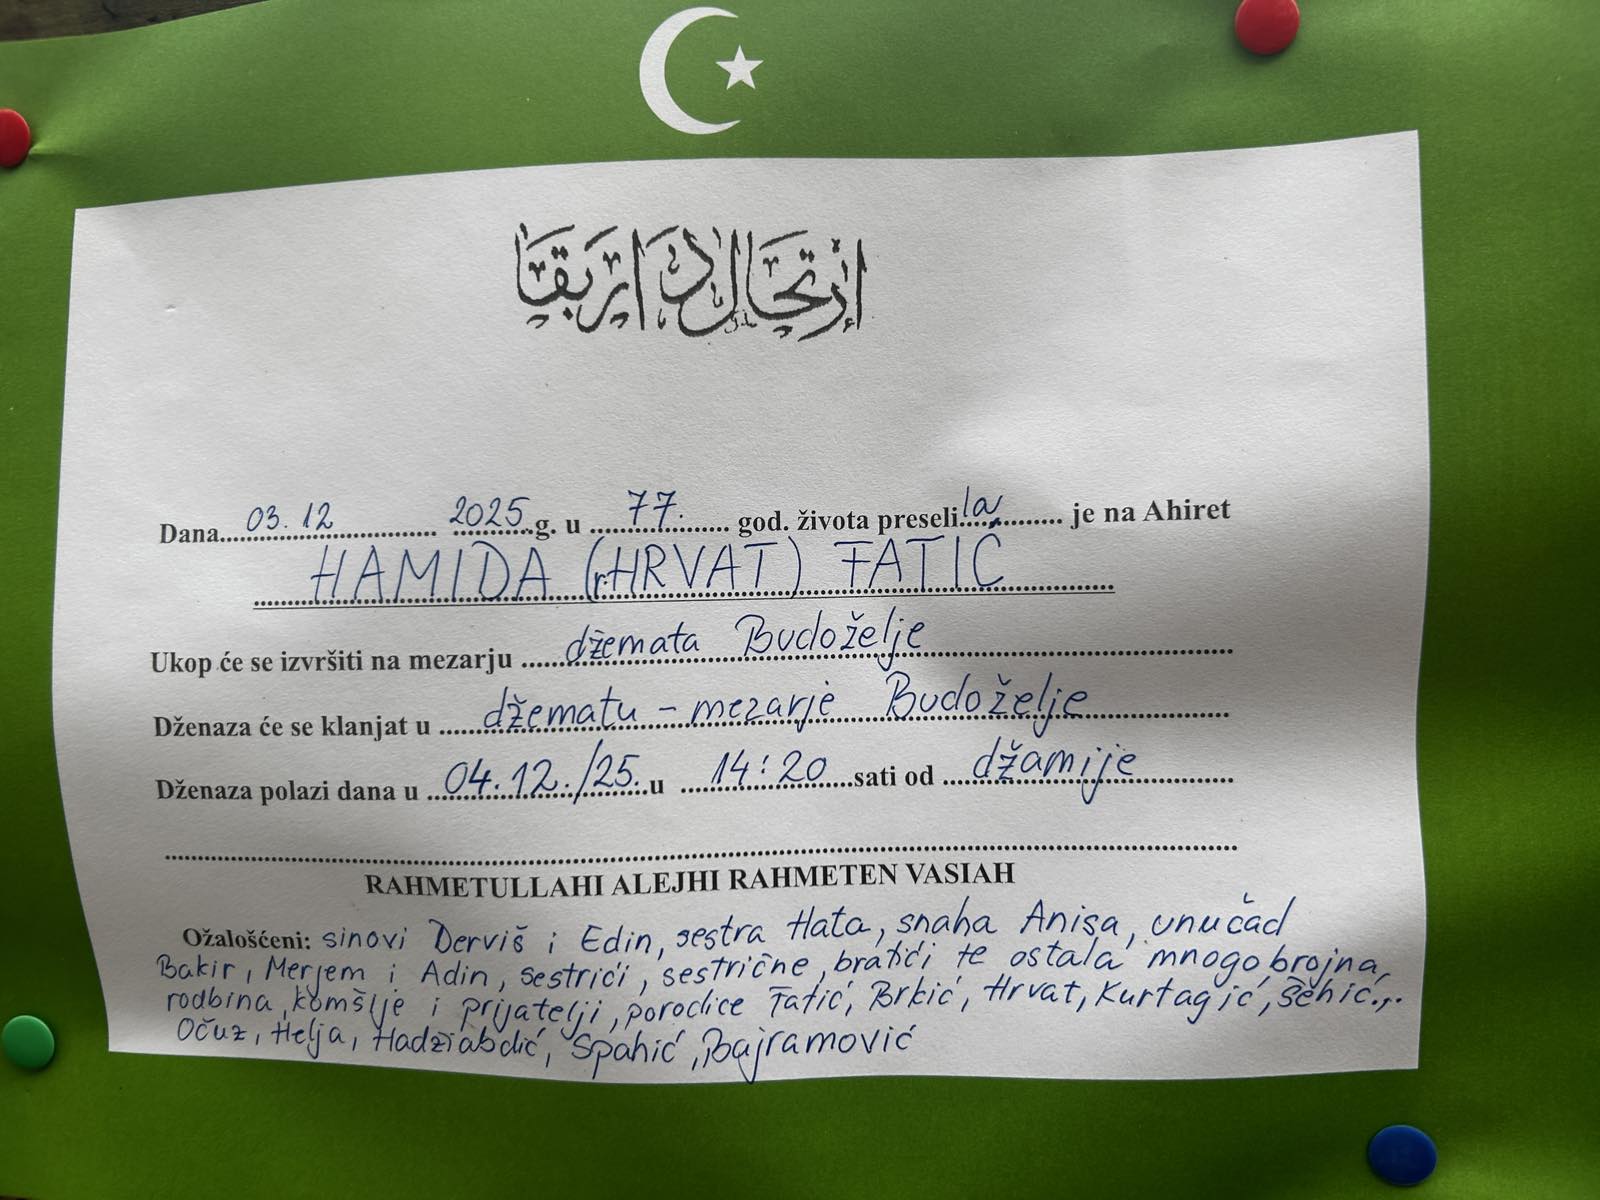 إرتحال دار بقا
Dana 03.12 2025 g. u 77. god. života preselila je na Ahiret
HAMIDA (r. HRVAT) FATIĆ
Ukop će se izvršiti na mezarju džemata Budoželje
Dženaza će se klanjat u džematu - mezarje Budoželje
Dženaza polazi dana u 04.12./25. u 14:20 sati od džamije
RAHMETULLAHI ALEJHI RAHMETEN VASIAH
Ožalošćeni: sinovi Derviš i Edin, sestra Hata, snaha Anisa, unučad
Bakir, Merjem i Adin, sestrići, sestrične, bratići te ostala mnogobrojna
rodbina, komšije i prijatelji, porodice Fatić, Brkić, Hrvat, Kurtagić, Šehić...
Očuz, Helja, Hadžiabdić, Spahić, Bajramović